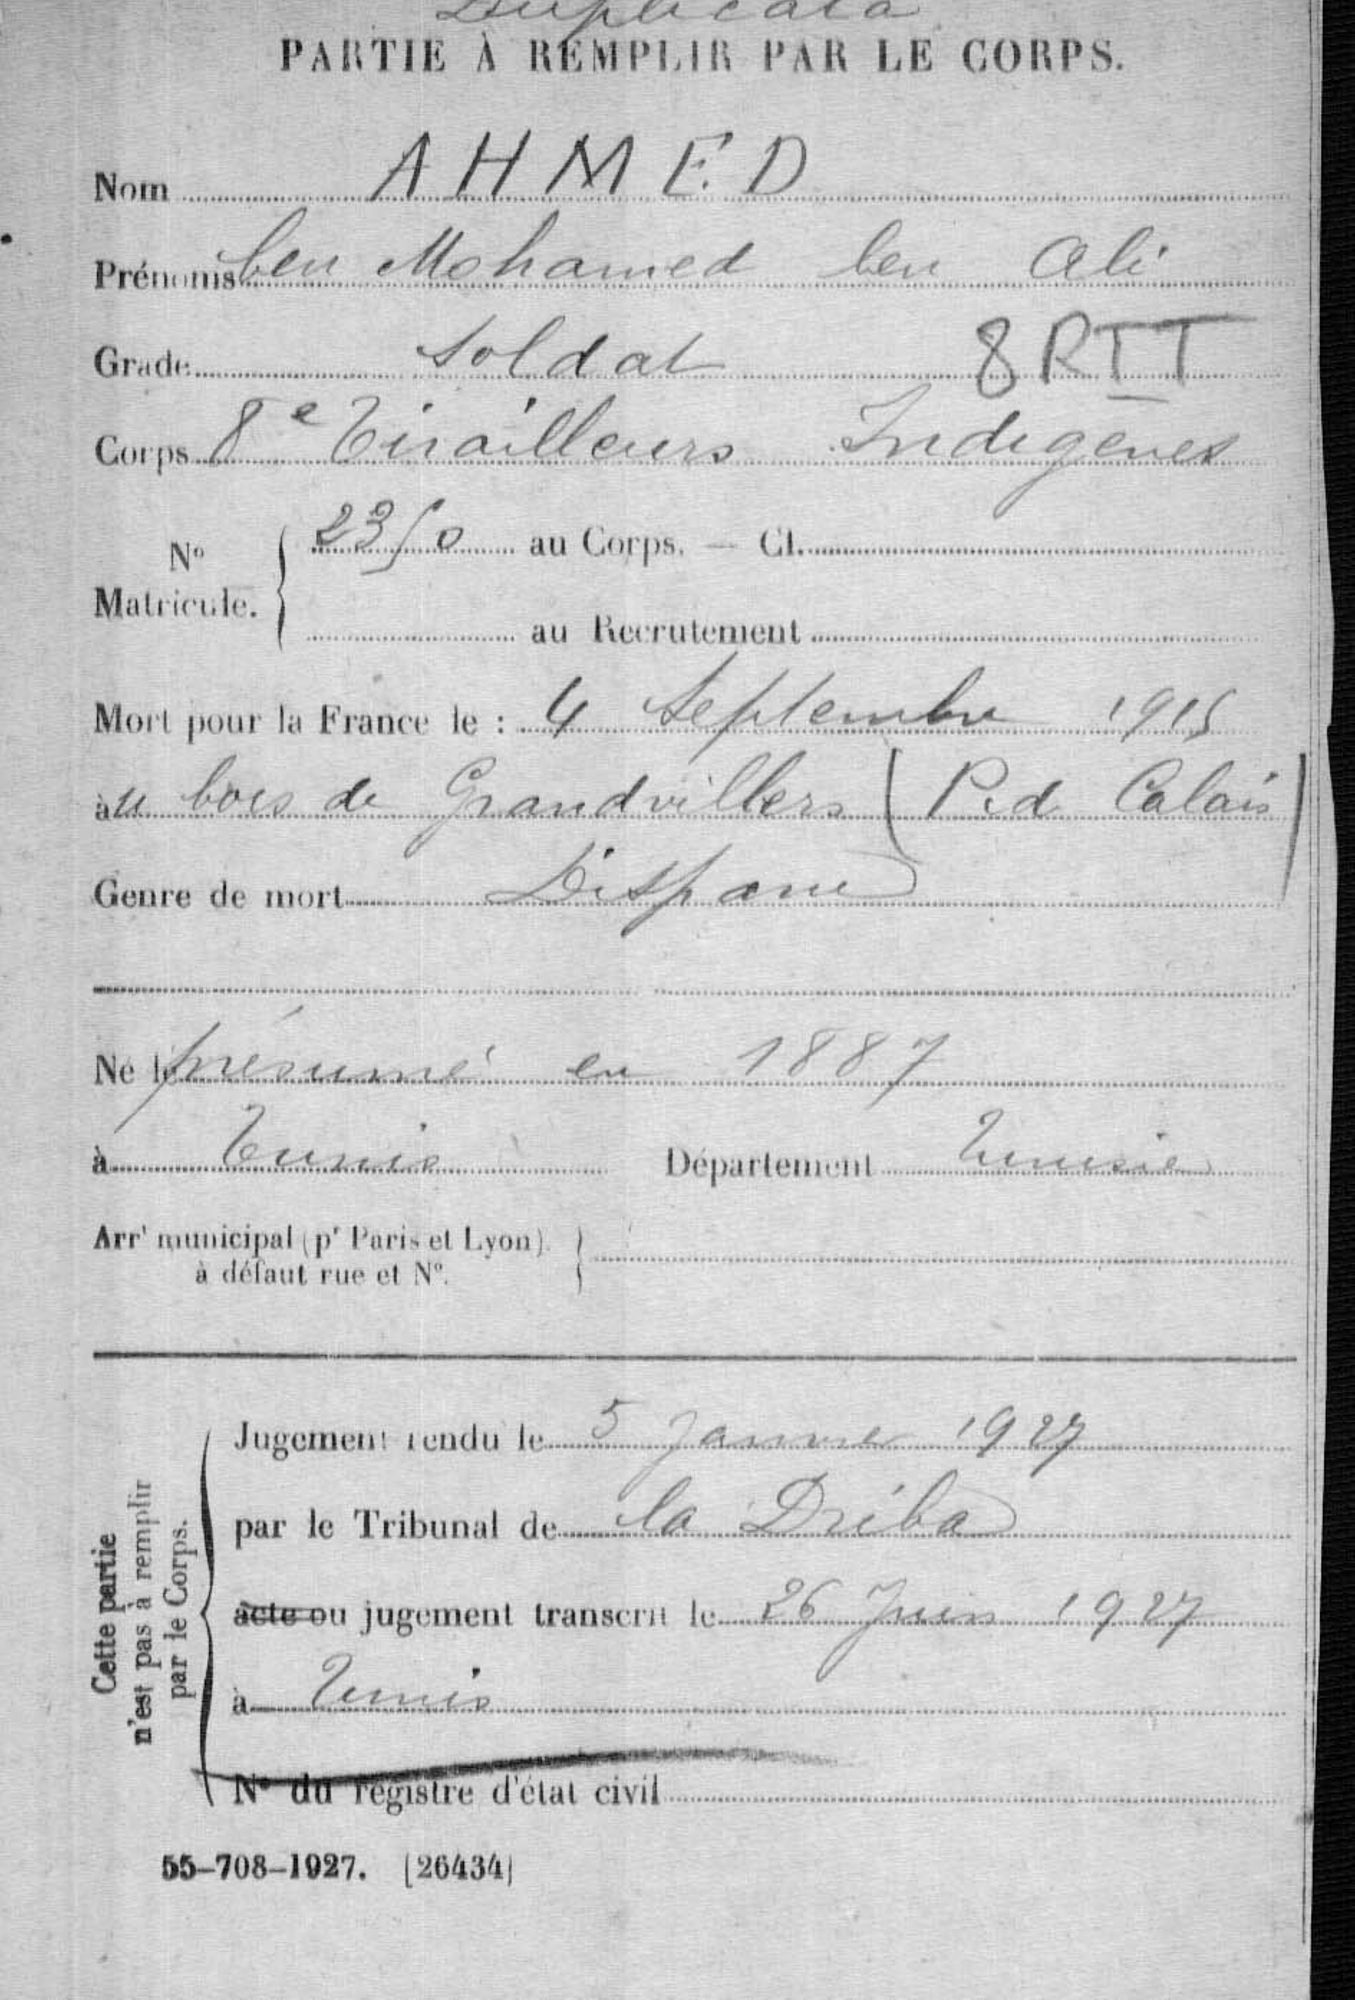 Duplicata
PARTIE À REMPLIR PAR LE CORPS.
Nom AHMED
Prénoms ben Mohamed ben Ali
Grade soldat 8 RTT
Corps 8e Tirailleurs Indigènes
No Matricule. { 2350 au Corps. — Cl.
au Recrutement
Mort pour la France le : 4 Septembre 1915
au bois de Grandvillers (P. d. Calais)
Genre de mort Disparu
Né le présumé en 1887
à Tunis Département Tunisie
Arrt municipal (pr Paris et Lyon). }
à défaut rue et No.
Cette partie
n'est pas à remplir
par le Corps.
Jugement rendu le 5 Janvier 1927
par le Tribunal de la Driba
acte ou jugement transcrit le 26 Juin 1927
à Tunis
No du registre d'état civil
55-708-1927. [26434]